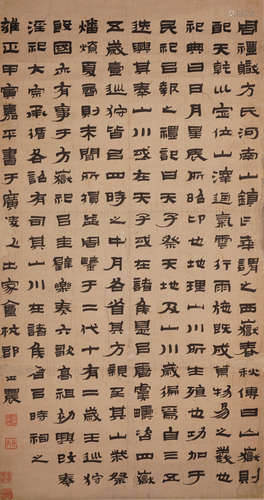 周禮職方氏河南山鎮曰華謂之西嶽春秋傳曰山嶽則
配天乾坤定位山澤通氣雲行雨施既成萬物易之義也
祀典曰日月星辰所昭卬也地理山川所生殖也功加于
民祀以報之禮記曰天子祭天地及山川歲徧焉自三五
迭興其奉山川或在天子或在諸侯是以唐虞疇咨四嶽
五歲壹巡狩皆以四時之中月各省其方親至其山柴祭
燔燎夏商則未聞所損益周鑒于二代十有二歲王巡狩
殷國亦有事于方嶽祀以圭璧樂奏六歌高祖初興改秦
淫祀大宗承循各詔有司其山川在諸侯者以時祠之
雍正甲寅嘉平書于廣陵 杭郡金農